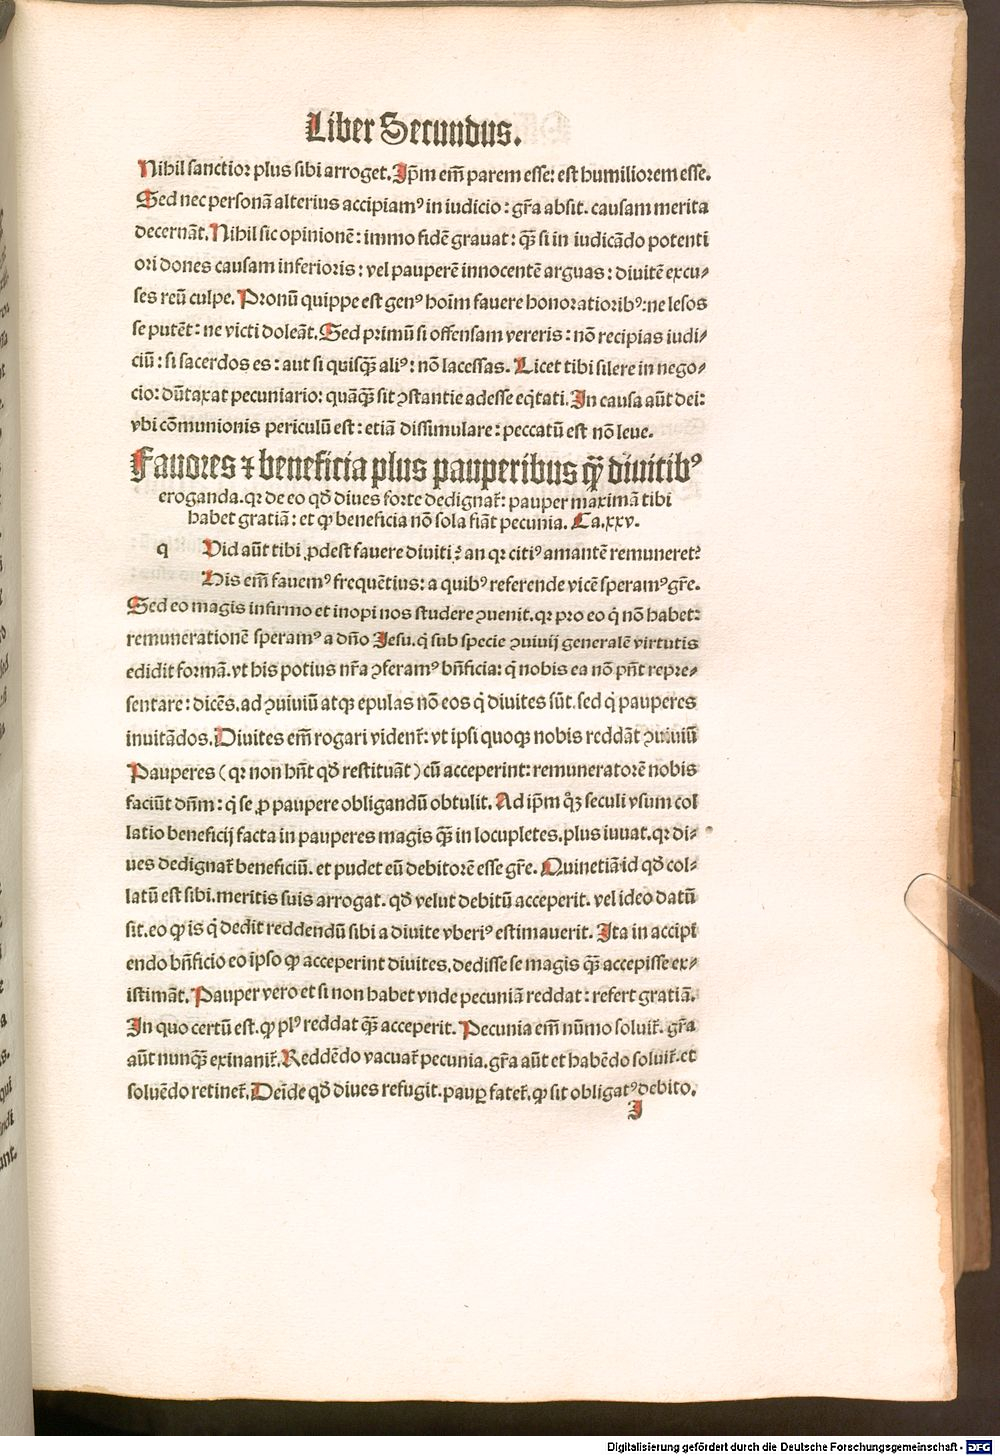 Liber Secundus.
Nihil sanctior plus sibi arroget. Ip̄m em̄ parem esse: est humiliorem esse.
Sed nec personā alterius accipiamꝰ in iudicio: gr̄a absit. causam merita
decernāt. Nihil sic opinionē: immo fidē grauat: qꝫ̄ si in iudicādo potenti
ori dones causam inferioris: vel pauperē innocentē arguas: diuitē excu⸗
ses reū culpe. Pronū quippe est genꝰ hoīm fauere honoratioribꝰ: ne lesos
se putēt: ne victi doleāt. Sed primū si offensam vereris: nō recipias iudi⸗
ciū: si sacerdos es: aut si quisqꝫ̄ aliꝰ: nō lacessas. Licet tibi silere in nego⸗
cio: dūtaxat pecuniario: quāqꝫ̄ sit ꝯstantie adesse eq̇tati. In causa aūt dei:
vbi cōmunionis periculū est: etiā dissimulare: peccatū est nō leue.
Fauores ⁊ beneficia plus pauperibus qꝫ̄ diuitibꝰ
eroganda. qꝛ de eo qd̄ diues forte dedignat̄: pauper maximā tibi
habet gratiā: et ꝙ beneficia nō sola fiāt pecunia. Ca.xxv.
q Vid aūt tibi ꝓdest fauere diuiti? an qꝛ citiꝰ amantē remuneret?
His em̄ fauemꝰ frequētius: a quibꝰ referende vicē speramꝰ gr̄e.
Sed eo magis infirmo et inopi nos studere ꝯuenit. qꝛ pro eo q̇ nō habet:
remunerationē speramꝰ a dn̄o Jesu. q̇ sub specie ꝯuiuij generalē virtutis
edidit formā. vt his potius nr̄a ꝯferamꝰ bn̄ficia: q̇ nobis ea nō pn̄t repre⸗
sentare: dicēs. ad ꝯuiuiū atqꝫ epulas nō eos q̇ diuites sūt. sed q̇ pauperes
inuitādos. Diuites em̄ rogari vident̄: vt ipsi quoqꝫ nobis reddāt ꝯuiuiū
Pauperes (qꝛ non hn̄t qd̄ restituāt) cū acceperint: remuneratorē nobis
faciūt dn̄m: q̇ se ꝓ paupere obligandū obtulit. Ad ip̄m q̇ꝫ seculi vsum col
latio beneficij facta in pauperes magis qꝫ̄ in locupletes. plus iuuat. qꝛ di⸗
ues dedignat̄ beneficiū. et pudet eū debitorē esse gr̄e. Quinetiā id qd̄ col⸗
latū est sibi. meritis suis arrogat. qd̄ velut debitū acceperit. vel ideo datū
sit. eo ꝙ is q̇ dedit reddendū sibi a diuite vberiꝰ estimauerit. Ita in accipi
endo bn̄ficio eo ipso ꝙ acceperint diuites. dedisse se magis qꝫ̄ accepisse ex⸗
istimāt. Pauper vero et si non habet vnde pecuniā reddat: refert gratiā.
In quo certū est. ꝙ plꝰ reddat qꝫ̄ acceperit. Pecunia em̄ nūmo soluit̄. gr̄a
aūt nunqꝫ̄ exinanit̄. Reddēdo vacuat̄ pecunia. gr̄a aūt et habēdo soluit̄. et
soluēdo retinet̄. Deīde qd̄ diues refugit. paup̲ fatet̄. ꝙ sit obligatꝰ debito.
I
Digitalisierung gefördert durch die Deutsche Forschungsgemeinschaft - DFG